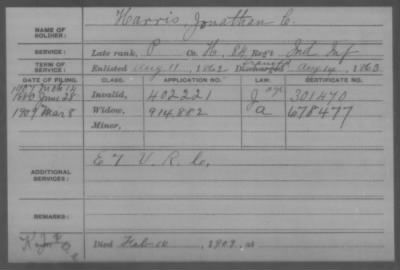 NAME OF SOLDIER: Harris, Jonathan C.
SERVICE: Late rank, P Co. H, 84 Reg't Ind Inf
TERM OF SERVICE: Enlisted Aug 11, 1862 Discharged Aug 14, 1863
DATE OF FILING. CLASS. APPLICATION NO. LAW. CERTIFICATE NO.
1880 June 28 Invalid, 402221 301470
1909 Mar 8 Widow, 914,882 a 678477
Minor,
ADDITIONAL SERVICES: E 7 V. R. C.
REMARKS:
Died Feb 10, 1909, at